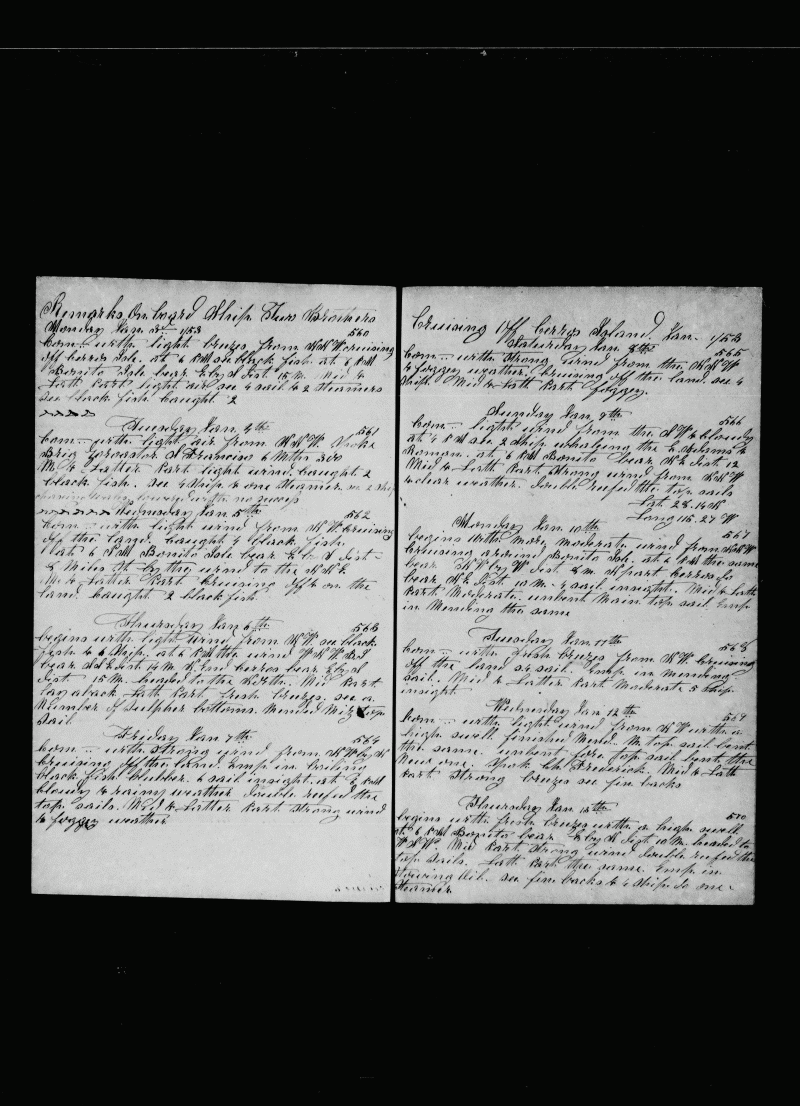 Remarks on board Ship Two Brothers
Monday Jan 3rd 1/53 560
Com-- with light breezes from NNW cruising
off Cerros Isle. at 4 P.M see black fish. at 6 P.M
Bonito Isle bear E by S dist 15 M. Mid &
Lath Part light air see 4 sail & 2 Steamers
see black fish caught 2
Tuesday Jan 4th 561
Com-- with light air from NNW. Spoke
Brig S Francisco 6 Mths 300
M. & Latter Part light wind. caught 2
black fish. see 4 Ship & one Steamer. see 2 ship
Wednesday Jan 5th 562
Com-- with light wind from NW cruising
off the land. caught 4 black fish
at 6 P.M Bonito Isle bear E by S dist
8 Miles St by the wind to the NNE
M. & Latter Part cruising off & on the
land caught 2 black fish
Thursday Jan 6th 563
begins with light wind from NW. see black
fish & 6 Ship. at 6 P.M the wind WNW
bear dist 14 M. N End Cerros bear E by S
dist 15 M. headed to the North. Mid Part
lay aback Lath Part fresh breezes. see a
Number of Sulpher bottoms. Mended Miz top
Sail
Friday Jan 7th 564
Com-- with Strong wind from NW by N
Cruising off the land. Emp in boiling
black fish blubber. 6 sail insight. at P.M
blowy & rainy weather double reefed the
top sails. Mid & Latter Part Strong wind
& foggy weather
Cruising off Cerros Island. Jan. 1/53
Saturday Jan 8th 565
Com-- with Strong wind from the NNW
& foggy weather. Cruising off the land. see 4
Ship. Mid & Lath Part foggy.
Sunday Jan 9th 566
Com-- light wind from the SW & cloudy
at 4 P.M see 2 Ship whaleing the &
Roman. at 6 P.M Bonito bear NE dist 12
Mid & Lath Part Strong wind from NNW
& clear weather. double reefed the top sails
Lat 28.14 N
Long 115.27 W
Monday Jan 10th 567
begins with more moderate wind from NNW
Cruising around Bonito Isle. at 6 P.M the same
bear NW by W dist 8 m. N part Cerros
bear NE dist 10 M. 4 sail insight. Mid & Lath
Part Moderate. unbent Main top sail Emp
in Mending the same
Tuesday Jan 11th 568
Com-- with fresh breezes from NW. Cruising
off the land & sail. Emp in mending
Sail. Mid & Latter Part Moderate 5 Ship
insight
Wednesday Jan 12th 569
Com-- with light wind from NW with a
high swell finished Mend. M. top sail bent
the same. unbent fore top sail bent the
New one. Spok Sh Frederick. Mid & Lath
Part Strong breezes see fin backs
Thursday Jan 13th 570
begins with fresh breezes with a high swell
at 6 P.M Bonito bear E by N dist 10 M. headed to
WSW. Mid Part Strong wind double reefed the
top sails. Lath Part the same. Emp in
Stowing Oil. see fin backs & 4 Ship & one
Steamer